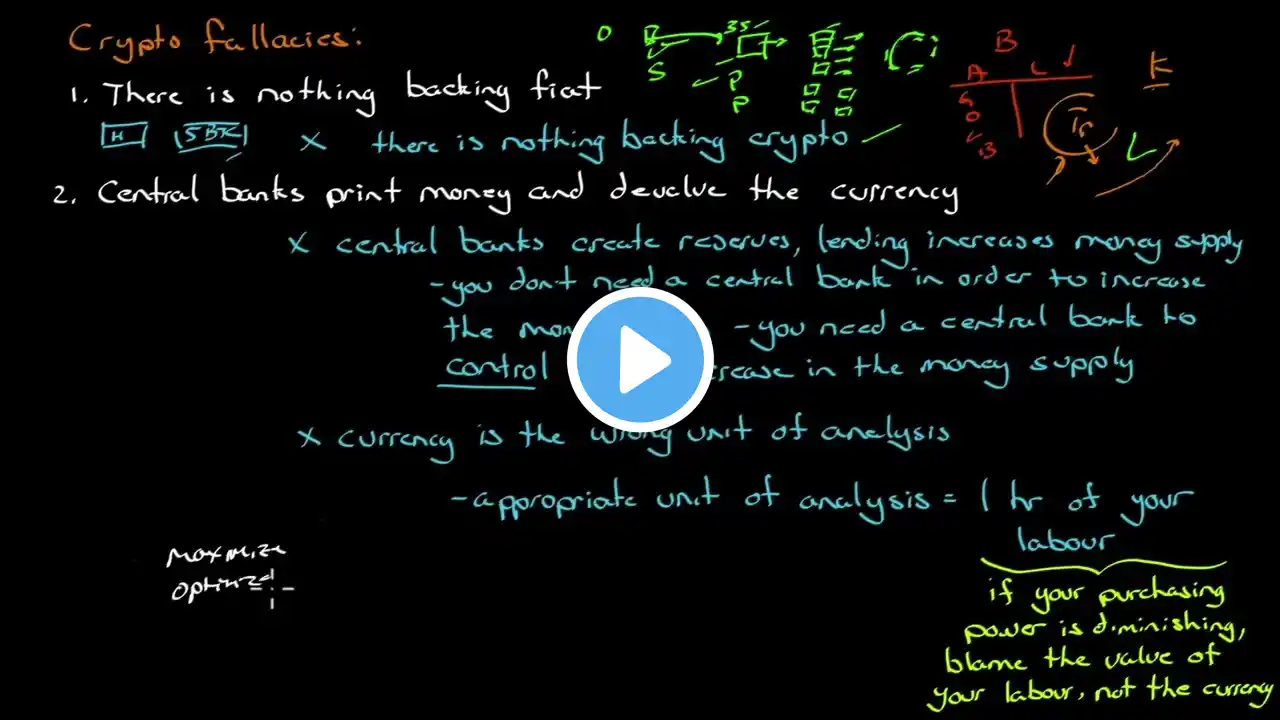 Crypto fallacies:
1. There is nothing backing fiat
H 5 BTC x there is nothing backing crypto
2. Central banks print money and devalue the currency
x central banks create reserves, lending increases money supply
- you don't need a central bank in order to increase
the - you need a central bank to
control in the money supply
x currency is the wrong unit of analysis
- appropriate unit of analysis = 1 hr of your
labour
if your purchasing
power is diminishing,
blame the value of
your labour, not the currency
maximize
O
35
S
P
P
B
A L
K
B
L